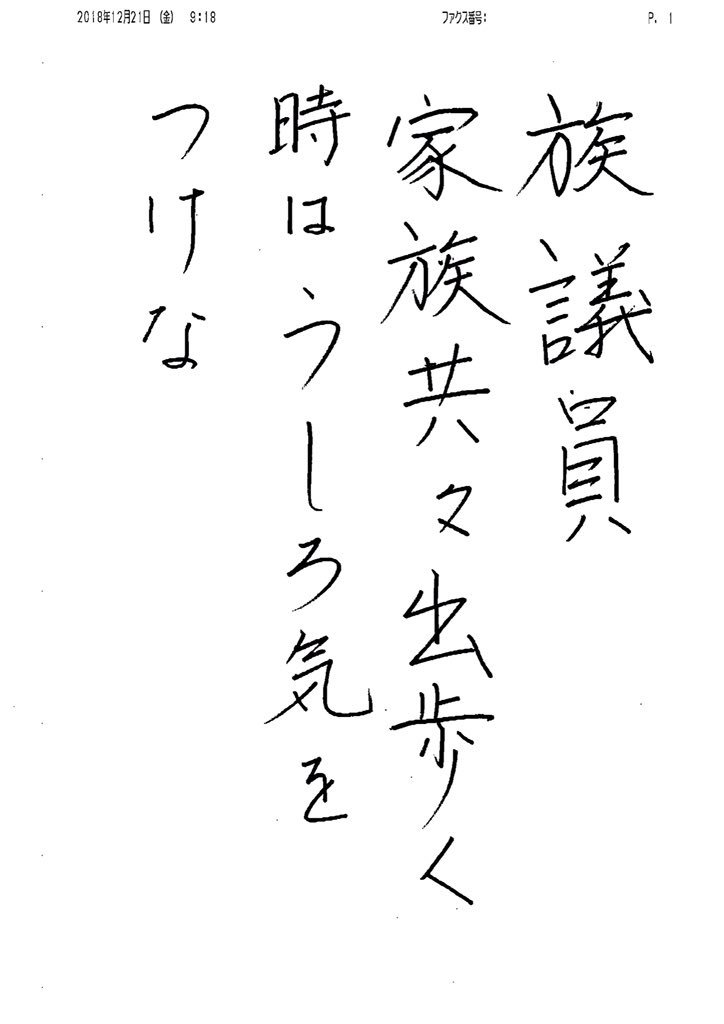 2018年12月21日（金） 9:18 ファクス番号: P. 1
族議員
家族共々出歩く
時はうしろ気を
つけな